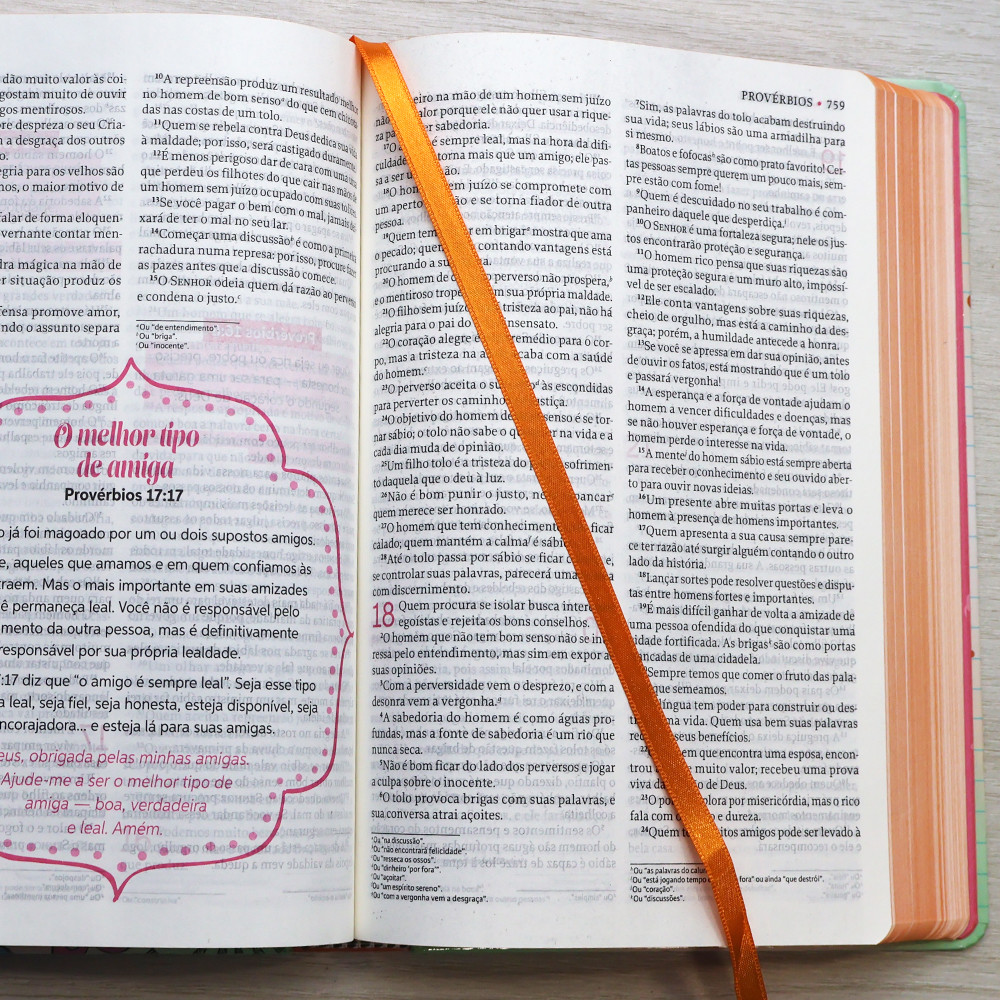 dão muito valor às coi-
gostam muito de ouvir
gos mentirosos.
re despreza o seu Cria-
a desgraça dos outros
o.
egria para os velhos são
hos, o maior motivo de
falar de forma eloquen-
vernante contar men-
dra mágica na mão de
er situação produz os
fensa promove amor,
ndo o assunto separa
10A repreensão produz um resultado melhor
no homem de bom sensoa do que cem chicota-
das nas costas de um tolo.
11Quem se rebela contra Deus dedica sua vida
à maldade; por isso, será castigado duramente.
12É menos perigoso dar de cara com uma ursa
que perdeu os filhotes do que cair nas mãos de
um homem sem juízo ocupado com suas tolices.
13Se você pagar o bem com o mal, jamais dei-
xará de ter o mal no seu lar.
14Começar uma discussãob é como a primeira
rachadura numa represa: por isso, procure fazer
as pazes antes que a discussão comece.
15O SENHOR odeia quem dá razão ao perverso
e condena o justo.c
a Ou "de entendimento".
b Ou "briga".
c Ou "inocente".
O melhor tipo
de amiga
Provérbios 17:17
o já foi magoado por um ou dois supostos amigos.
e, aqueles que amamos e em quem confiamos às
traem. Mas o mais importante em suas amizades
ê permaneça leal. Você não é responsável pelo
mento da outra pessoa, mas é definitivamente
responsável por sua própria lealdade.
7:17 diz que "o amigo é sempre leal". Seja esse tipo
a leal, seja fiel, seja honesta, esteja disponível, seja
ncorajadora... e esteja lá para suas amigas.
eus, obrigada pelas minhas amigas.
Ajude-me a ser o melhor tipo de
amiga — boa, verdadeira
e leal. Amém.
eiro na mão de um homem sem juízo
alor porque ele não quer usar a rique-
za pa er sabedoria.
17O é sempre leal, mas na hora da difi-
culdade torna mais que um amigo; ele pas-
sa a ser u ão.
18O hom em juízo se compromete com
um aperto o e se torna fiador de outra
pessoa.
19Quem tem em brigare mostra que ama
o pecado; que contando vantagens está
procurando a su
20O homem de c perverso não prospera,b
e o mentiroso trope m sua própria maldade.
21O filho sem juízo tristeza ao pai, não há
alegria para o pai do ensato.
22O coração alegre e emédio para o cor-
po, mas a tristeza na a caba com a saúde
do homem.c
23O perverso aceita o su od às escondidas
para perverter os caminho stiça.
24O objetivo do homem de enso é se tor-
nar sábio; o tolo não sabe o q er na vida e a
cada dia muda de opinião.
25Um filho tolo é a tristeza do p sofrimen-
to daquela que o deu à luz.
26Não é bom punir o justo, ne pancar
quem merece ser honrado.
27O homem que tem conhecimento ficar
calado; quem mantém a calmaf é sábio
28Até o tolo passa por sábio se ficar c e,
se controlar suas palavras, parecerá uma
com discernimento.
18 Quem procura se isolar busca inter
egoístas e rejeita os bons conselhos.
2O homem que não tem bom senso não se in
ressa pelo entendimento, mas sim em expor a
suas opiniões.
3Com a perversidade vem o desprezo, e com a
desonra vem a vergonha.g
4A sabedoria do homem é como águas pro-
fundas, mas a fonte de sabedoria é um rio que
nunca seca.
5Não é bom ficar do lado dos perversos e jogar
a culpa sobre o inocente.
6O tolo provoca brigas com suas palavras, e
sua conversa atrai açoites.
a Ou "na discussão".
b Ou "não encontrará felicidade".
c Ou "resseca os ossos".
d Ou "dinheiro 'por fora'".
e Ou "açoitar".
f Ou "um espírito sereno".
g Ou "com a vergonha vem a desgraça".
PROVÉRBIOS • 759
7Sim, as palavras do tolo acabam destruindo
sua vida; seus lábios são uma armadilha para
si mesmo.
8Boatos e fofocasa são como prato favorito! Cer-
tas pessoas sempre querem um pouco mais, sem-
pre estão com fome!
9Quem é descuidado no seu trabalho é com-
panheiro daquele que desperdiça.b
10O SENHOR é uma fortaleza segura; nele os jus-
tos encontrarão proteção e segurança.
11O homem rico pensa que suas riquezas são
uma proteção segura e um muro alto, impossí-
vel de ser escalado.
12Ele conta vantagens sobre suas riquezas,
cheio de orgulho, mas está a caminho da des-
graça; porém, a humildade antecede a honra.
13Se você se apressa em dar sua opinião, antes
de ouvir os fatos, está mostrando que é um tolo
e passará vergonha!
14A esperança e a força de vontade ajudam o
homem a vencer dificuldades e doenças, mas
se não houver esperança e força de vontade, o
homem perde o interesse na vida.
15A mentec do homem sábio está sempre aberta
para receber o conhecimento e seu ouvido aber-
to para ouvir novas ideias.
16Um presente abre muitas portas e leva o
homem à presença de homens importantes.
17Quem apresenta a sua causa sempre pare-
ce ter razão até surgir alguém contando o outro
lado da história.
18Lançar sortes pode resolver questões e dispu-
tas entre homens fortes e importantes.
19É mais difícil ganhar de volta a amizade de
uma pessoa ofendida do que conquistar uma
cidade fortificada. As brigasd são como portas
rancadas de uma cidadela.
Sempre temos que comer o fruto das pala-
que semeamos.
língua tem poder para construir ou des-
uma vida. Quem usa bem suas palavras
re seus benefícios.
22 em que encontra uma esposa, encon-
trou muito valor; recebeu uma prova
viva da de Deus.
23O po plora por misericórdia, mas o rico
fala com o e dureza.
24Quem te itos amigos pode ser levado à
a Ou "as palavras do calu
b Ou "está jogando tempo fora" ou ainda "que destrói".
c Ou "coração".
d Ou "discussões".